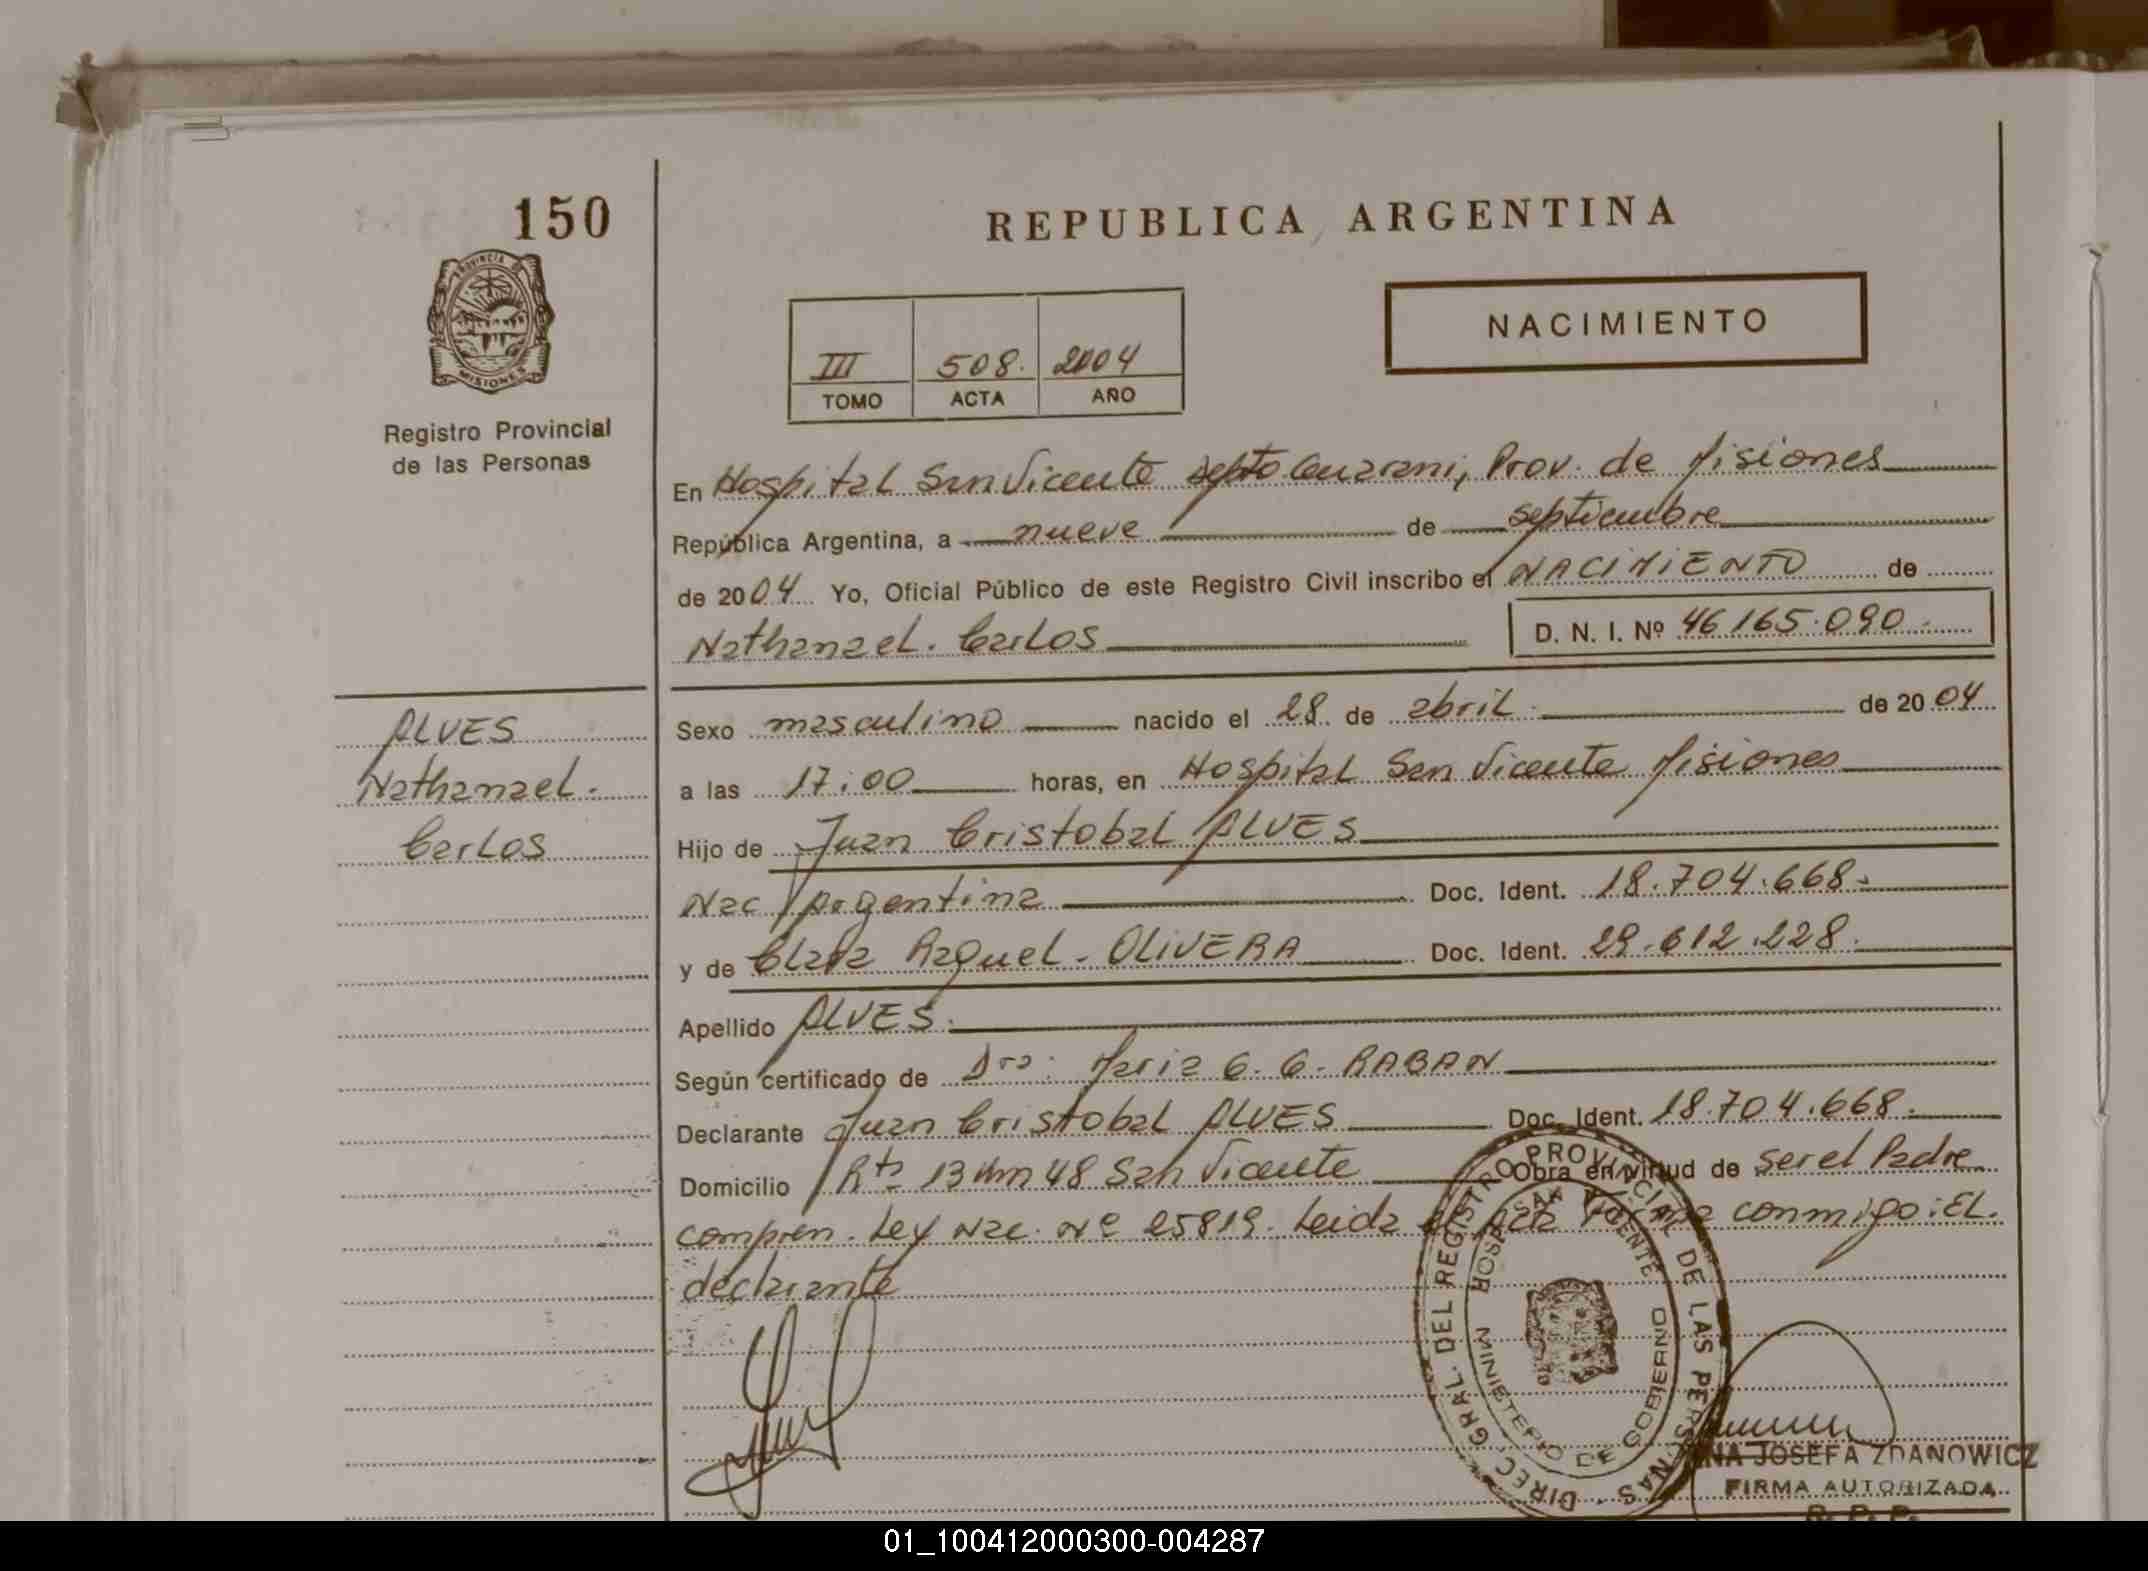 150
REPUBLICA ARGENTINA
PROVINCIA DE
MISIONES
Registro Provincial
de las Personas
III 508. 2004
TOMO ACTA AÑO
NACIMIENTO
En Hospital San Vicente Depto Guarani, Prov. de Misiones
República Argentina, a nueve de septiembre
de 2004 Yo, Oficial Público de este Registro Civil inscribo el NACIMIENTO de
Nathanael. Carlos
D. N. I. Nº 46.165.090.
ALVES
Nathanael.
Carlos
Sexo masculino nacido el 28 de abril de 2004
a las 17:00 horas, en Hospital San Vicente Misiones
Hijo de Juan Cristobal ALVES
Nac Argentina Doc. Ident. 18.704.668.
y de Clara Raquel. OLIVERA Doc. Ident. 29.612.228.
Apellido ALVES.
Según certificado de Dra: Maria G. G. RABAN
Declarante Juan Cristobal ALVES Doc. Ident. 18.704.668.
Domicilio Rta 13 Km 48 San Vicente Obra en virtud de ser el Padre
compren. Ley Nac. Nº 25819. Leida el acta firma conmigo: EL.
declarante
DIREC. GRAL. DEL REGISTRO PROVINCIAL DE LAS PERSONAS
HOSP. SAN VICENTE
MINISTERIO DE GOBIERNO
NA JOSEFA ZDANOWICZ
FIRMA AUTORIZADA
R. P. P.
01_100412000300-004287